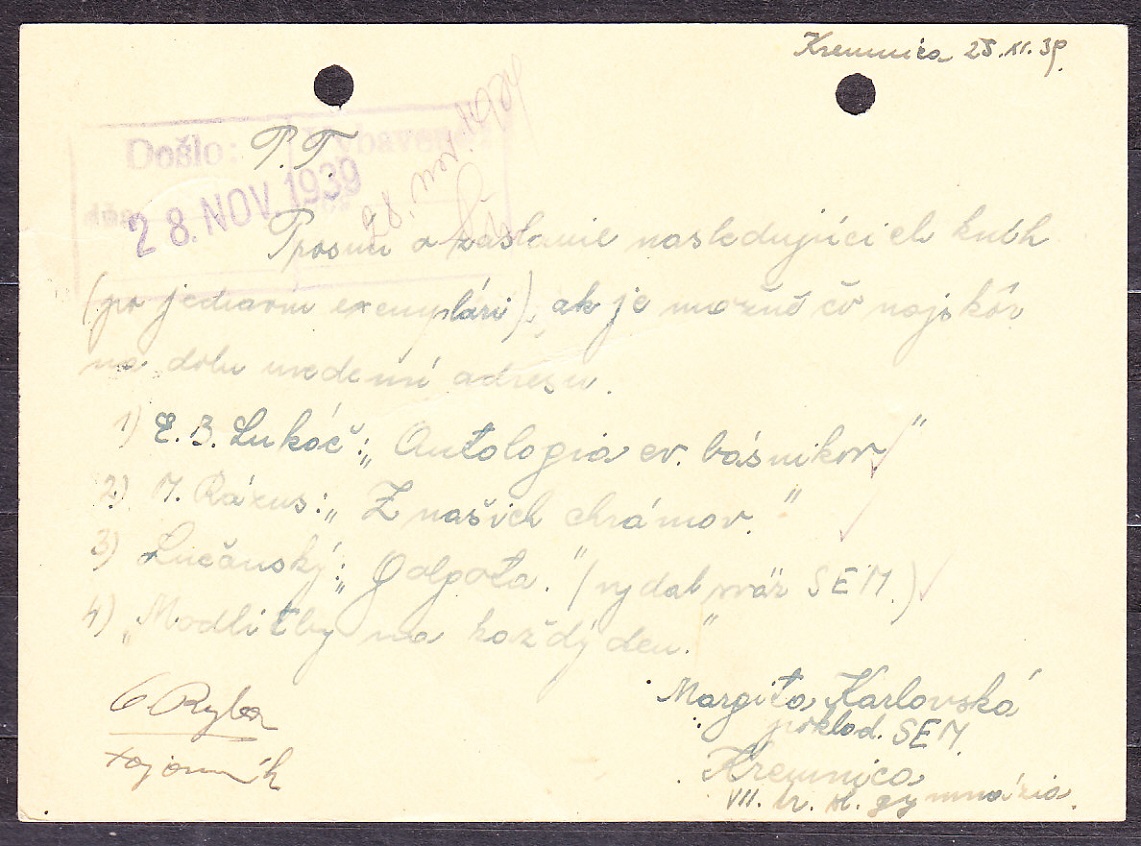 Kremnica 25.XI.39.
Došlo: Vybavené:
dňa
28. NOV. 1939
28. nov.
P.T.
Prosím o zaslanie nasledujúcich kníh
(po jednom exemplári), ak je možné čo najskôr
na dolu uvedenú adresu.
1) E. B. Lukáč: „Antologia ev. básnikov"
2) M. Rázus: „Z našich chrámov."
3) Lučanský: „Golgota." (vydal sväz SEM.)
4) „Modlitby na každý deň."
Ryba
tajomník
Margita Karlovská
poklad. SEM.
Kremnica
VII. tr. št. gymnázia.